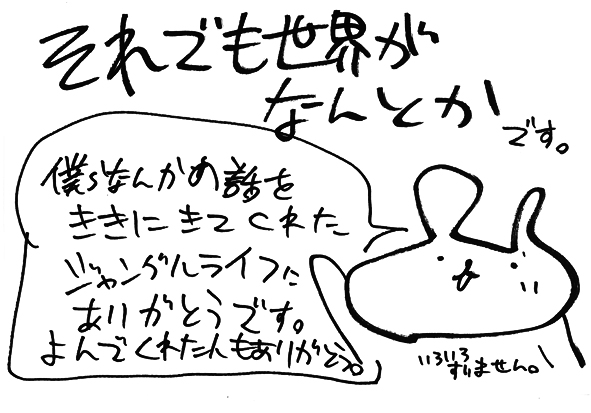 それでも世界が
なんとかです。
僕らなんかの話を
ききにきてくれた
ジャングルライフに
ありがとうです。
よんでくれた人もありがとう。
いろいろ
すいません。